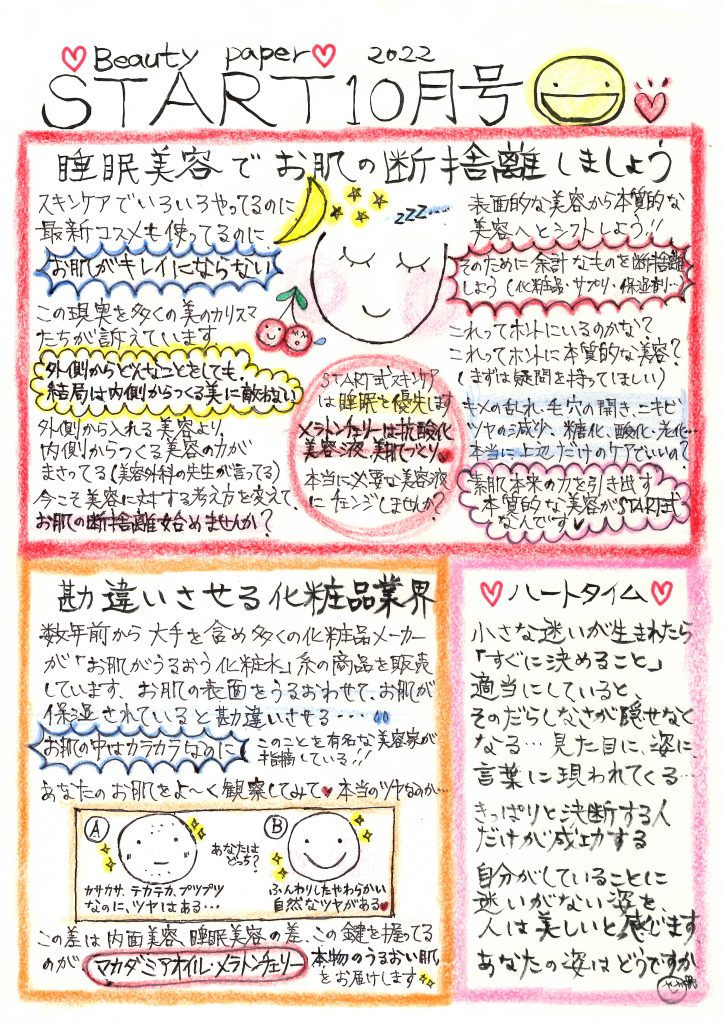 Beauty paper 2022
START10月号
睡眠美容でお肌の断捨離しましょう
スキンケアでいろいろやってるのに
最新コスメも使ってるのに
お肌がキレイにならない
この現実を多くの美のカリスマ
たちが訴えています
外側からどんなことをしても、
結局は内側からつくる美に敵わない
外側から入れる美容より、
内側からつくる美容の力が
まさってる(美容外科の先生が言ってる)
今こそ美容に対する考え方を変えて、
お肌の断捨離始めませんか?
zzz...
START式スキンケア
は睡眠を優先します
メラトンチェリーは抗酸化
美容液、美肌でっとり
本当に必要な美容液
にチェンジしませんか?
表面的な美容から本質的な
美容へとシフトしよう!!
そのために余計なものを断捨離
しよう(化粧品・サプリ・保湿剤…
これってホントにいるのかな?
これってホントに本質的な美容?
(まずは疑問を持ってほしい)
キメの乱れ、毛穴の開き、ニキビ
ツヤの減少、糖化、酸化、老化…
本当に上辺だけのケアでいいの?
素肌本来の力を引き出す
本質的な美容がSTART式
なんです
勘違いさせる化粧品業界
数年前から大手を含め多くの化粧品メーカー
が「お肌がうるおう化粧水」系の商品を販売
しています、お肌の表面をうるおわせて、お肌が
保湿されていると勘違いさせる…
お肌の中はカラカラなのに
このことを有名な美容家が
指摘している!!
あなたのお肌をよ〜く観察してみて 本当のツヤなのか…
A
カサカサ、テカテカ、プツプツ
なのに、ツヤはある…
あなたは
どっち?
B
ふんわりしたやわらかい
自然なツヤがある
この差は内面美容、睡眠美容の差、この鍵を握ってる
のが、マカダミアオイル・メラトンチェリー 本物のうるおい肌
をお届けします
ハートタイム
小さな迷いが生まれたら
「すぐに決めること」
適当にしていると、
そのだらしなさが隠せなく
なる…見た目に、姿に、
言葉に現われてくる…
きっぱりと決断する人
だけが成功する
自分がしていることに
迷いがない姿を、
人は美しいと感じます
あなたの姿はどうですか